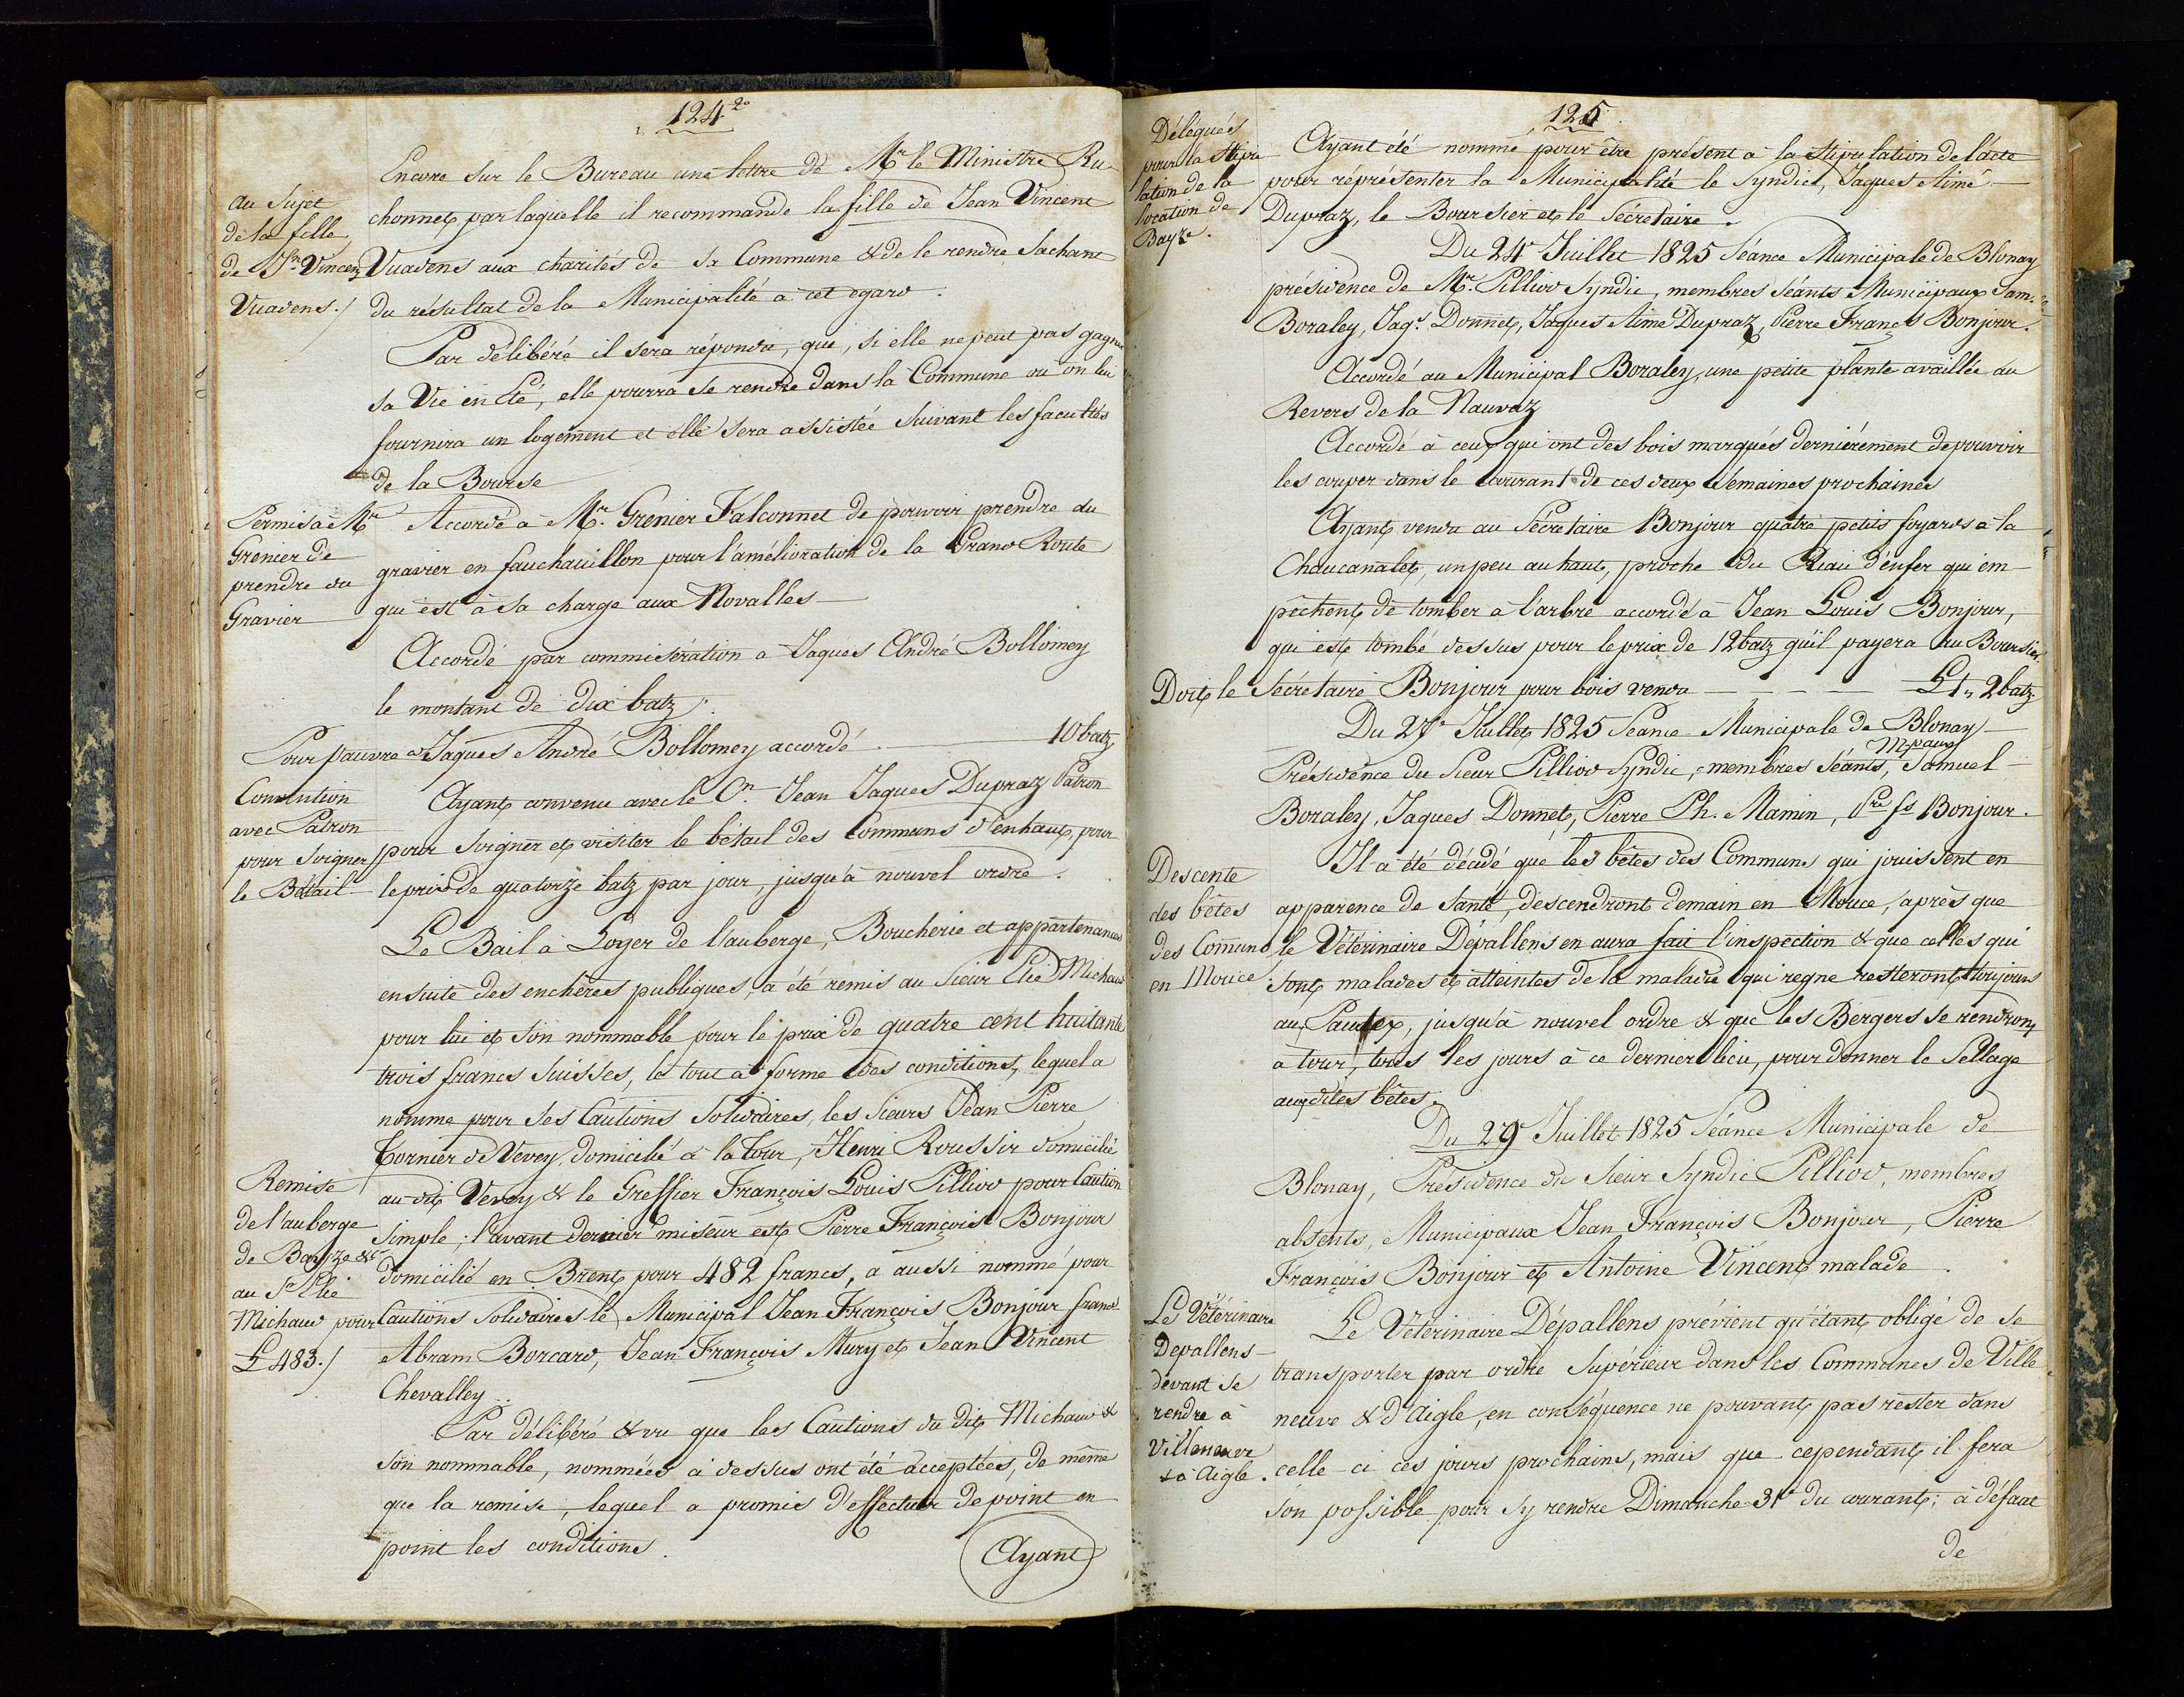 124 2º
Encore sur le Bureau une lettre de Mr le Ministre Ru-
au Sujet
de la fille
de Jn Vincent
Vuadens./
chonnet par laquelle il recommande la fille de Jean Vincent
Vuadens aux charités de sa Commune & de le rendre Sachant
du résultat de la Municipalité à cet egard.
Par délibéré il sera répondu, que, si elle ne peut pas gagner
sa Vie en Eté, elle pourra se rendre dans la Commune ou on lui
fournira un logement et elle sera assistée suivant les facultés
de la Bourse
Permis à Mr
Grenier de
prendre du
Gravier
Accordé à Mr. Grenier Falconnet de pouvoir prendre du
gravier en fauchauillon pour l'amélioration de la Grand Route
qui est à sa charge aux Novalles
Accordé par commisération a Jaques André Bollomey
le montant de dix batz.
Pour pauvre a Jaques André Bollomey accordé 10 batz
Convention
avec Patron
pour Soigner
le Bétail
Ayant convenu avec le Cn. Jean Jaques Dupraz Patron
pour Soigner et visiter le bétail des Communs d'enhaut, pour
le prix de quatorze batz par jour, jusqu'à nouvel ordre.
Le Bail à Loyer de l'auberge, Boucherie et appartenances
ensuite des enchères publiques, a été remis au Sieur Elie Michaud
pour lui et son nommable pour le prix de quatre cent huitante
trois francs Suisses, le tout à forme des conditions, lequel a
nomme pour ses Cautions Solidaires, les Sieurs Jean Pierre
Cornier de Vevey, domicilié à la tour, Henri Roussir domicilié
Remise
de l'auberge
de Bayze &c
au Sr Elie
Michaud pour
L 483./
au dit Vevey & le Greffier François Louis Pilliod pour Caution
Simple; l'avant dernier miseur est Pierre François Bonjour
domicilié en Brent pour 482 francs, a aussi nommé pour
Cautions Solidaires le Municipal Jean François Bonjour franc
Abram Borcard, Jean François Mury et Jean Vincent
Chevalley..
Par délibéré & vu que les Cautions du dit Michaud &
son nommable, nommées ci dessus ont été acceptées, de même
que la remise, lequel a promis d'effectuer de point en
point les conditions.
Ayant
125
Délégués
pour la Stipu
lation de la
location de
Bayze.
Ayant été nommé pour être présent à la Stipulation de l'acte
pour réprésenter la Municipalité le Syndic, Jaques Aimé
Dupraz, le Boursier et le Sécretaire.
Du 24e Juillet 1825 Séance Municipale de Blonay
présidence de Mr. Pilliod Syndic, membres Séants Municipaux Sam.
Boraley, Jaqs. Donnet, Jaques Aimé Dupraz, Pierre Franç.s Bonjour.
Accordé au Municipal Boraley, une petite plante availlée au
Revers de la Nauvaz
Accordé à ceux qui ont des bois marqués dernièrement de pouvoir
les couper dans le courant de ces deux Semaines prochaines
Ayant vendu au Sécretaire Bonjour quatre petits foyards à la
Chaucanalet, un peu au haut, proche du Riau d'enfer qui em-
pêchent de tomber à l'arbre accordé à Jean Louis Bonjour,
qui est tombé dessus pour le prix de 12 batz qu'il payera au Boursier.
Doit le Sécretaire Bonjour pour bois vendu L 1,, 2 batz
Du 27e Juillet 1825 Seance Municipale de Blonay
Présidence du Sieur Pilliod Syndic, membres Séants, Mpaux Samuel
Boraley, Jaques Donnet, Pierre Ph. Mamin, Pre fs Bonjour.
Descente
des bêtes
des Communs
en Mouce
Il a été décidé que les bêtes des Communs qui jouissent en
apparence de Santé, descendront demain en Mouce, après que
le Vétérinaire Dépallens en aura fait l'inspection & que celles qui
Sont malades et atteintes de la maladie qui regne resteront toujours
aux Pautex, jusqu'à nouvel ordre & que les Bergers se rendront
a tour, tous les jours à ce dernier lieu, pour donner le Sellage
aux dites bêtes.
Du 29e Juillet 1825 Séance Municipale de
Blonay, Présidence du Sieur Syndic Pilliod, membres
absents, Municipaux Jean François Bonjour, Pierre
François Bonjour et Antoine Vincent malade.
Le Vétérinaire
Depallens
devant se
rendre à
Villeneuve
& à Aigle.
Le Véterinaire Dépallens prévient qu'étant obligé de se
transporter par ordre Supérieur dans les Communes de Ville
neuve & d'Aigle, en conséquence ne pouvant pas rester dans
celle-ci ces jours prochains, mais que cependant il fera
son possible pour s'y rendre Dimanche 31e du courant; à défaut
de